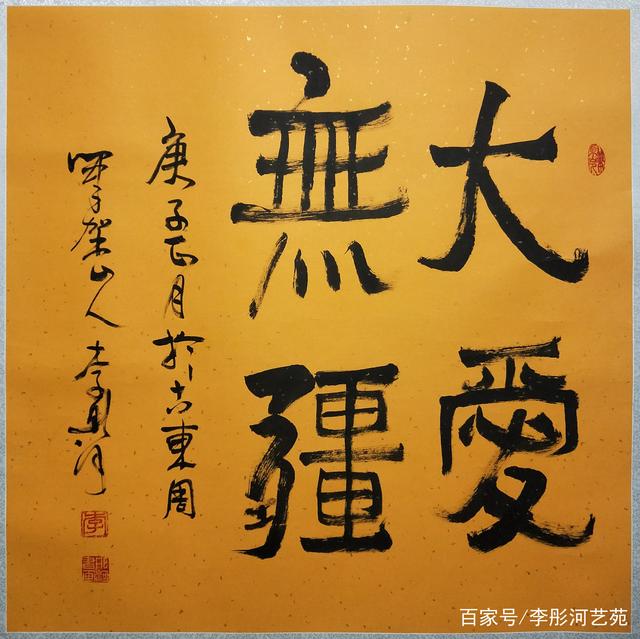 大愛
無疆
庚子正月於古東周
架山人李彤河
李
百家号/李彤河艺苑